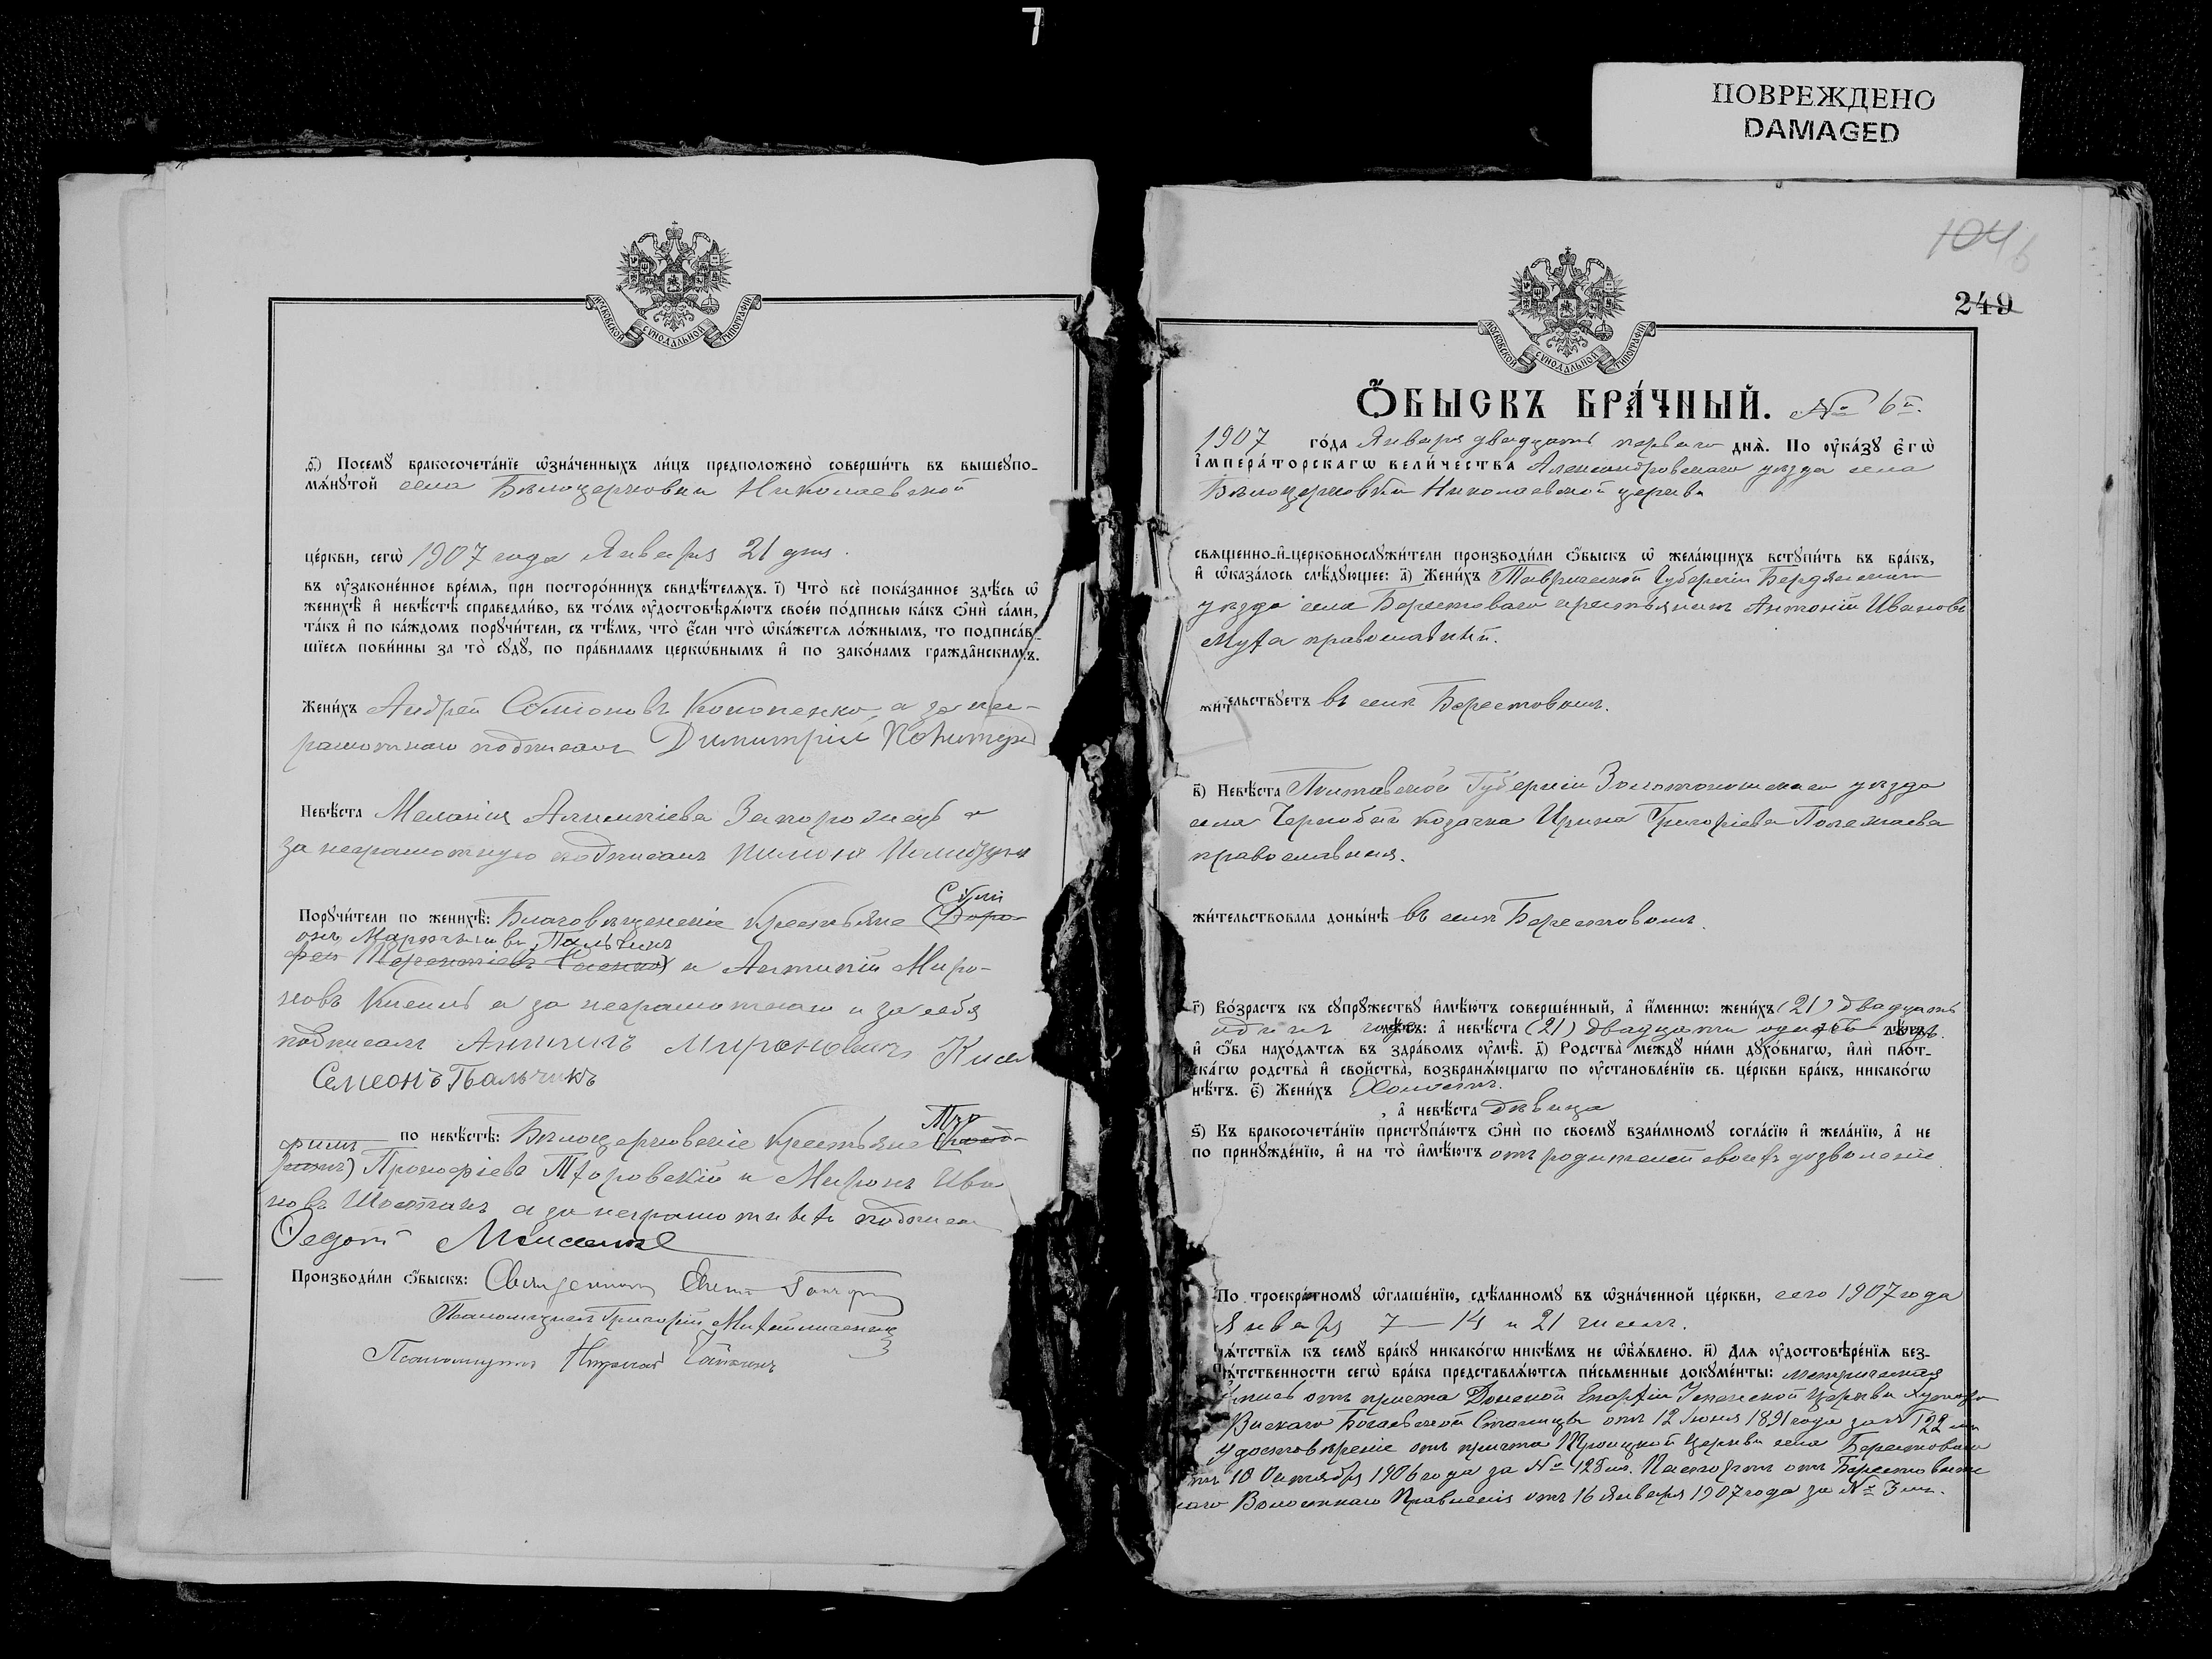 7
ПОВРЕЖДЕНО
DAMAGED
МОСКОВСКОЙ СѴНОДАЛЬНОЙ ТИПОГРАФІИ
ѳ҃) Посемꙋ бракосочета́нїе ѡ҆зна́ченныхъ ли́цъ предположено̀ соверши́ть въ вышеꙋпо-
мѧ́нꙋтой села Бѣлоцерковки Николаевской
це́ркви, сегѡ̀ 1907 года Января 21 дня.
въ ᲂу҆законе́нное вре́мѧ, при посторо́ннихъ свидѣ́телѧхъ. і҃) Что̀ всѐ пока́занное здѣ́сь ѡ҆
женихѣ̀ и҆ невѣ́стѣ справедли́во, въ то́мъ ᲂу҆достовѣрѧ́ютъ свое́ю по́дписью ка́къ ѻ҆нѝ са́ми,
та́къ и҆ по ка́ждомъ порꙋчи́тели, съ тѣ́мъ, что̀ є҆́сли что̀ ѡ҆ка́жетсѧ ло́жнымъ, то подписа́в-
шїесѧ пови́нны за то̀ сꙋдꙋ̀, по пра́виламъ церко́внымъ и҆ по зако́намъ гражда́нскимъ.
Жени́хъ Андрей Семіоновъ Кононенко, а за нег-
рамотнаго подписалъ Димитрій
Невѣ́ста Меланія Алимпіева Запорожецъ а
за неграмотную подписалъ
Порꙋчи́тели по женихѣ̀: Благовѣщенскіе Крестьяне
Пальчикъ
и Антипій Миро-
новъ Кисиль а за неграмотнаго и за себя
подписалъ Антипъ Мироновичъ Кисил
Семеонъ Пальчикъ
по невѣ́стѣ: Бѣлоцерковскіе Крестьяне
Прокофіевъ и Миронъ Ива
новъ Шостакъ а за неграмотныхъ подписал
Федотъ Моисеенко
Производи́ли ѻ҆́быскъ: Священникъ
Псаломщикъ Григорій
Псаломщикъ Николай
104 6
249
МОСКОВСКОЙ СѴНОДАЛЬНОЙ ТИПОГРАФІИ
Ѻ҆́БЫСКЪ БРА́ЧНЫЙ. № 6й.
1907 го́да Января двадцать перваго днѧ̀. По ᲂу҆ка́зꙋ є҆гѡ̀
і҆мпера́торскагѡ вели́чества Александровскаго уѣзда села
Бѣлоцерковки Николаевской церкви
свѧщенно-и҆-церковнослꙋжи́тели производи́ли ѻ҆́быскъ ѡ҆ жела́ющихъ встꙋпи́ть въ бра́къ,
и҆ ѡ҆каза́лось слѣ́дꙋющее: а҃) Жени́хъ Таврической Губерніи Бердянскаго
уѣзда села Берестоваго крестьянинъ Антоній Ивановъ
Муха православный.
жи́тельствꙋетъ въ селѣ Берестовомъ.
в҃) Невѣ́ста Полтавской Губерніи Золотоношскаго уѣзда
села Чернобай козачка Ирина Григоріева Полежаева
православная.
жи́тельствовала доны́нѣ въ селѣ Берестовомъ.
г҃) Во́зрастъ къ сꙋпрꙋ́жествꙋ и҆мѣ́ютъ соверше́нный, а҆ и҆́менно: жени́хъ (21) двадцать
одинъ годъ: а҆ невѣ́ста (21) двадцати одинъ годъ.
и҆ ѻ҆́ба нахо́дѧтсѧ въ здра́вомъ ᲂу҆мѣ̀. д҃) Родства̀ междꙋ̀ ни́ми дꙋхо́внагѡ, и҆лѝ пло́т-
скагѡ родства̀ и҆ сво́йства, возбранѧ́ющагѡ по ᲂу҆становле́нїю св. це́ркви бра́къ, никако́гѡ
нѣ́тъ. є҃) Жени́хъ Холостъ.
, а҆ невѣ́ста дѣвица
ѕ҃) Къ бракосочета́нїю пристꙋпа́ютъ ѻ҆нѝ по своемꙋ̀ взаи́мномꙋ согла́сїю и҆ жела́нїю, а҆ не
по принꙋжде́нїю, и҆ на то̀ и҆мѣ́ютъ отъ родителей своихъ дозволеніе
По троекра́тномꙋ ѡ҆глаше́нїю, сдѣ́ланномꙋ въ ѡ҆зна́ченной це́ркви, сего 1907 года
Января 7 — 14 и 21 чиселъ.
пѧ́тствїѧ къ семꙋ̀ бра́кꙋ никако́гѡ никѣ́мъ не ѡ҆б̾ѧ́влено. и҃) Длѧ ᲂу҆достовѣре́нїѧ без-
пѧ́тственности сегѡ̀ бра́ка представлѧ́ютсѧ пи́сьменные докꙋме́нты: метрическая
пись отъ причта Донской Епархіи Успенской Церкви Хутора
Богаевской Станицы отъ 12 Іюня 1891 года за № 122 мъ
Удостовѣреніе отъ причта Троицкой Церкви села Берестоваго
отъ 10 Октября 1906 года за № 128 мъ. Паспортъ отъ Берестовск
аго Волостнаго Правленія отъ 16 Января 1907 года за № 3 мъ.